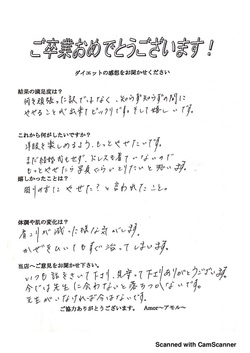 ご卒業おめでとうございます!
ダイエットの感想をお聞かせください
結果の満足度は?
何を頑張った訳ではなく、知らず知らずの間に
やせることが出来てビックリです。そして嬉しいです。
これから何がしたいですか?
洋服を楽しめるよう、もっとやせたいです。
まだ結婚前もせず、ドレスも着ていないので
もっとやせたら写真とりいとりたいと思います。
嬉しかったことは?
周りの方にやせた?と言われたこと。
体調や肌の変化は?
肩こりが減った様な気がします。
かぜをひいてもすぐ治ってしまいます。
当店へご意見をお聞かせ下さい。
いつも話をきいて下さり、見守って下さりありがとうございます。
今では先生に会わないと落ちつかないです。
先生がいなければ今はないです。
ご協力ありがとうございます。 Amor～アモル～
Scanned with CamScanner